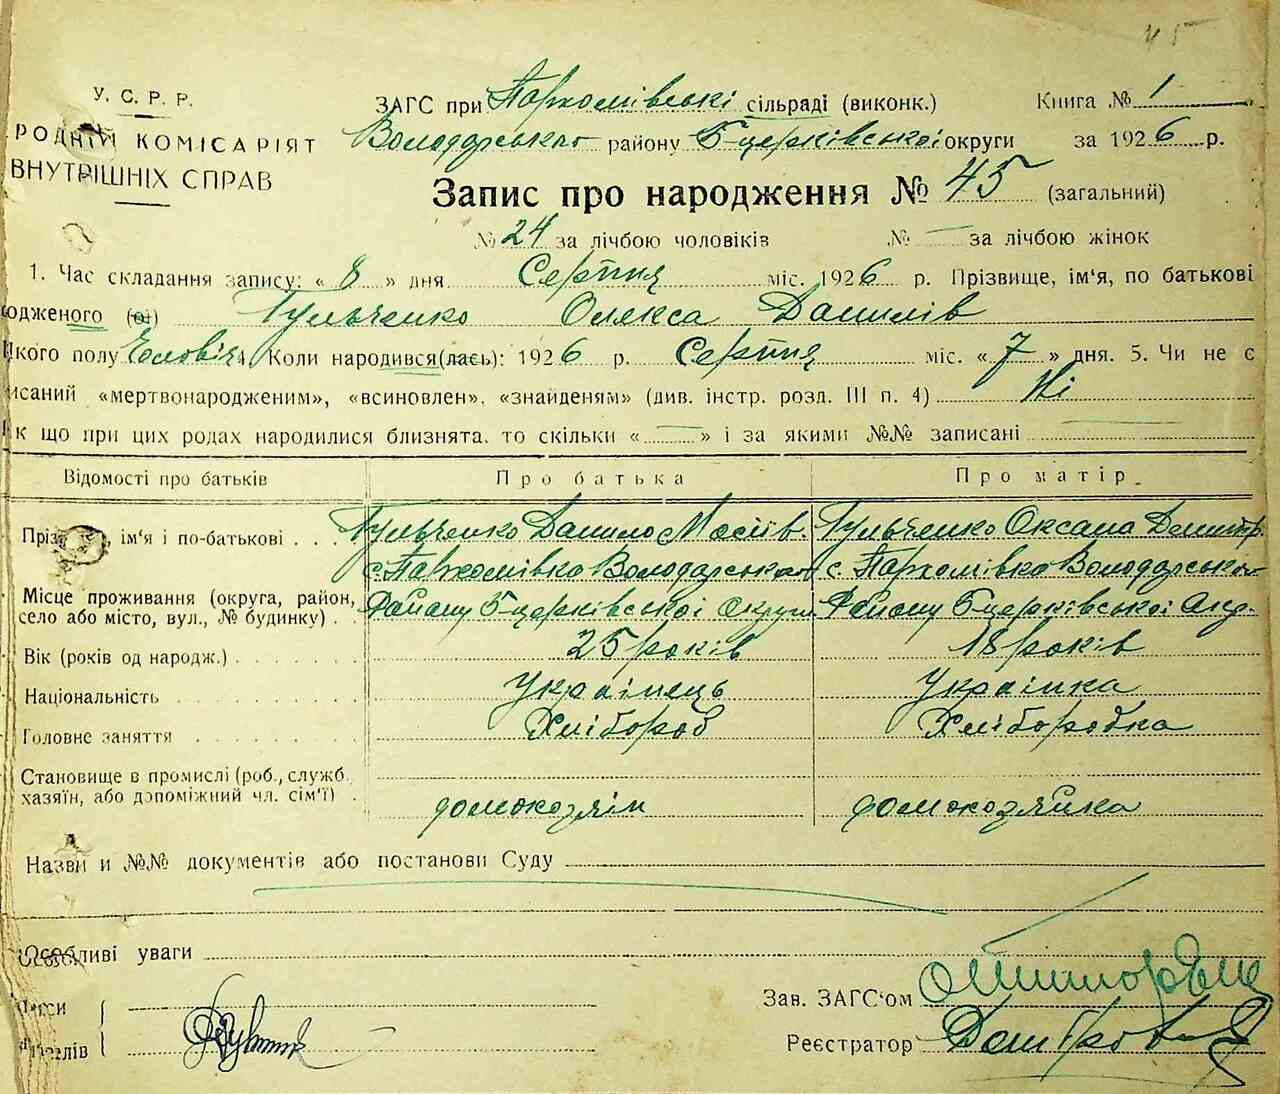 45
У. С. Р. Р.
РОДНІЙ КОМІСАРІЯТ
ВНУТРІШНІХ СПРАВ
ЗАГС при Пархомівські сільраді (виконк.) Книга № 1
Володарського району Б-церківської округи за 1926 р.
Запис про народження № 45 (загальний)
№ 24 за лічбою чоловіків № — за лічбою жінок
1. Час складання запису: « 8 » дня Серпня міс. 1926 р. Прізвище, ім'я, по батькові
одженого (ої) Гульченко Олекса Данилів
якого полу Чоловіч 4. Коли народився(лась): 1926 р. Серпня міс. « 7 » дня. 5. Чи не є
исаний «мертвонародженим», «всиновлен», «знайденям» (див. інстр. розд. III п. 4) Ні
Як що при цих родах народилися близнята, то скільки « — » і за якими №№ записані —
Відомості про батьків Про батька Про матір
Прізв , ім'я і по-батькові . . . Гульченко Данило Мосіїв. Гульченко Оксана Дмитр.
с. Пархомівка Володарського с. Пархомівка Володарського
Місце проживання (округа, район, село або місто, вул., № будинку) . . Району Б-церківської Округи Району Б-церківської Окр.
Вік (років од народж.) 25 років 18 років
Національність Українець Українка
Головне заняття Хлібороб Хліборобка
Становище в промислі (роб., служб.
хазяїн, або допоміжний чл. сім'ї) . домохозяїн домохозяйка
Назви и №№ документів або постанови Суду
Особливі уваги
Зав. ЗАГС'ом
Реєстратор